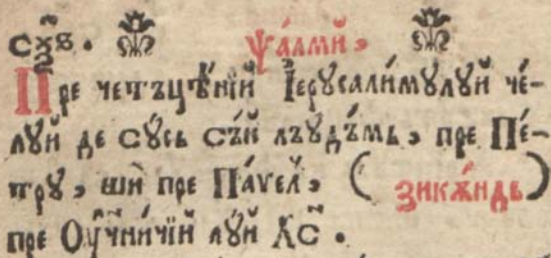 сх҃ѕ. Ѱа́лми̂,
Пре четъцѣ́нїй І҆ерꙋсали́мꙋлꙋй че́-
лꙋй де сꙋ́сь съ́й лъꙋдъ́мь, пре Пе́-
трꙋ, ши̂ пре Па́ѵел, (зикѫ́ндь)
пре Оу҆чн҃и́чїй лꙋ́й Хс҃.